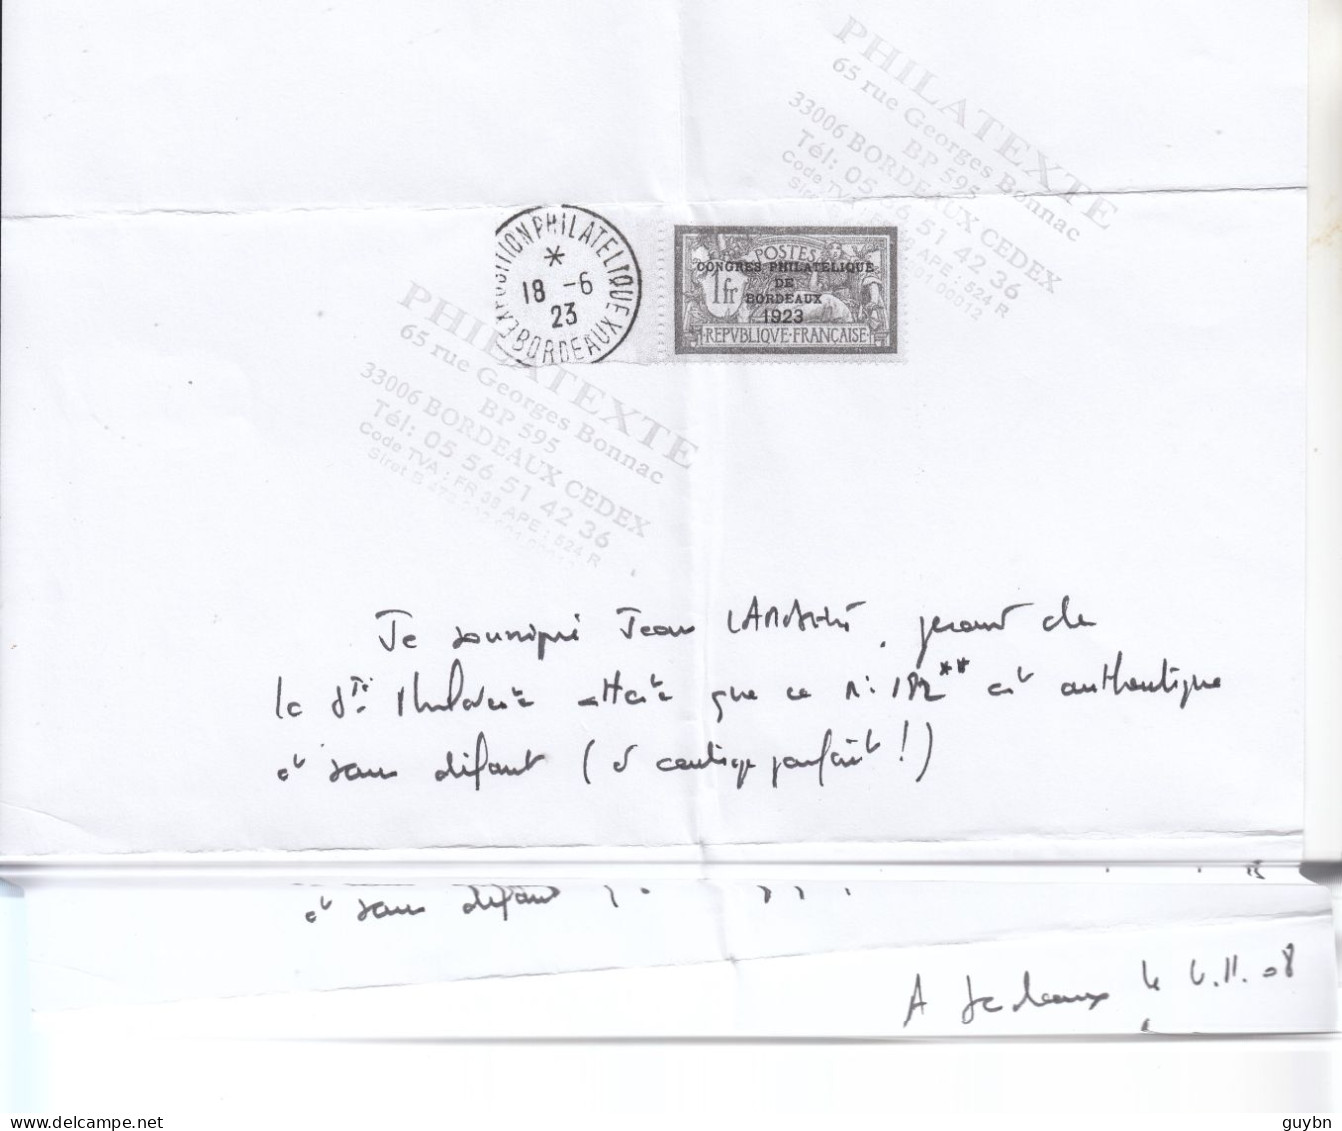 PHILATEXTE
65 rue Georges Bonnac
BP 595
33006 BORDEAUX CEDEX
Tél: 05 56 51 42 36
APE : 524 R
EXPOSITION PHILATELIQUE
*
18 -6
23
BORDEAUX
POSTES
CONGRES PHILATELIQUE
DE
1fr BORDEAUX
1923
REPVBLIQVE·FRANÇAISE
PHILATEXTE
65 rue Georges Bonnac
BP 595
33006 BORDEAUX CEDEX
Tél: 05 56 51 42 36
Code TVA : FR 38 APE : 524 R
Siret
Je soussigné Jean gérant de
la Sté Philatexte atteste que ce n: 182** est authentique
et sans défaut ( et centrage parfait ! )
et sans défaut
A Bordeaux le 6.11.08
delcampe.net
guybn